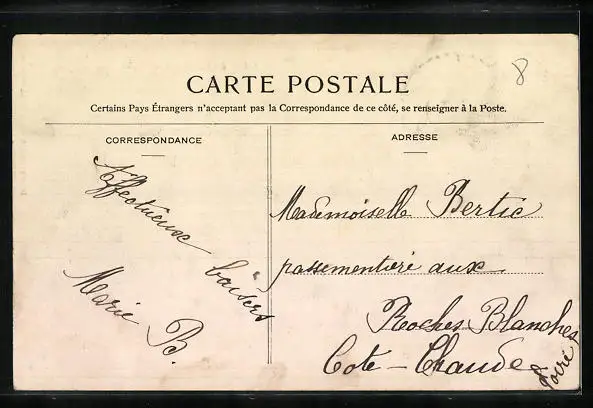 8
CARTE POSTALE
Certains Pays Étrangers n'acceptant pas la Correspondance de ce côté, se renseigner à la Poste.
CORRESPONDANCE
Affectueux
baisers
Marie B.
ADRESSE
Mademoiselle Bertic
passementière aux
Roches Blanches
Cote-Chaude
Loire